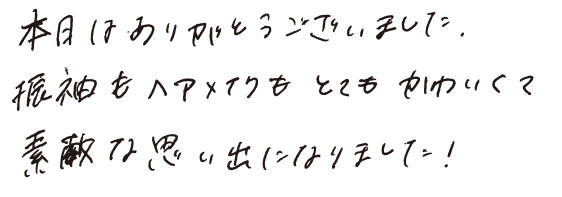 本日はありがとうございました.
振袖もヘアメイクもとてもかわいくて
素敵な思い出になりました!